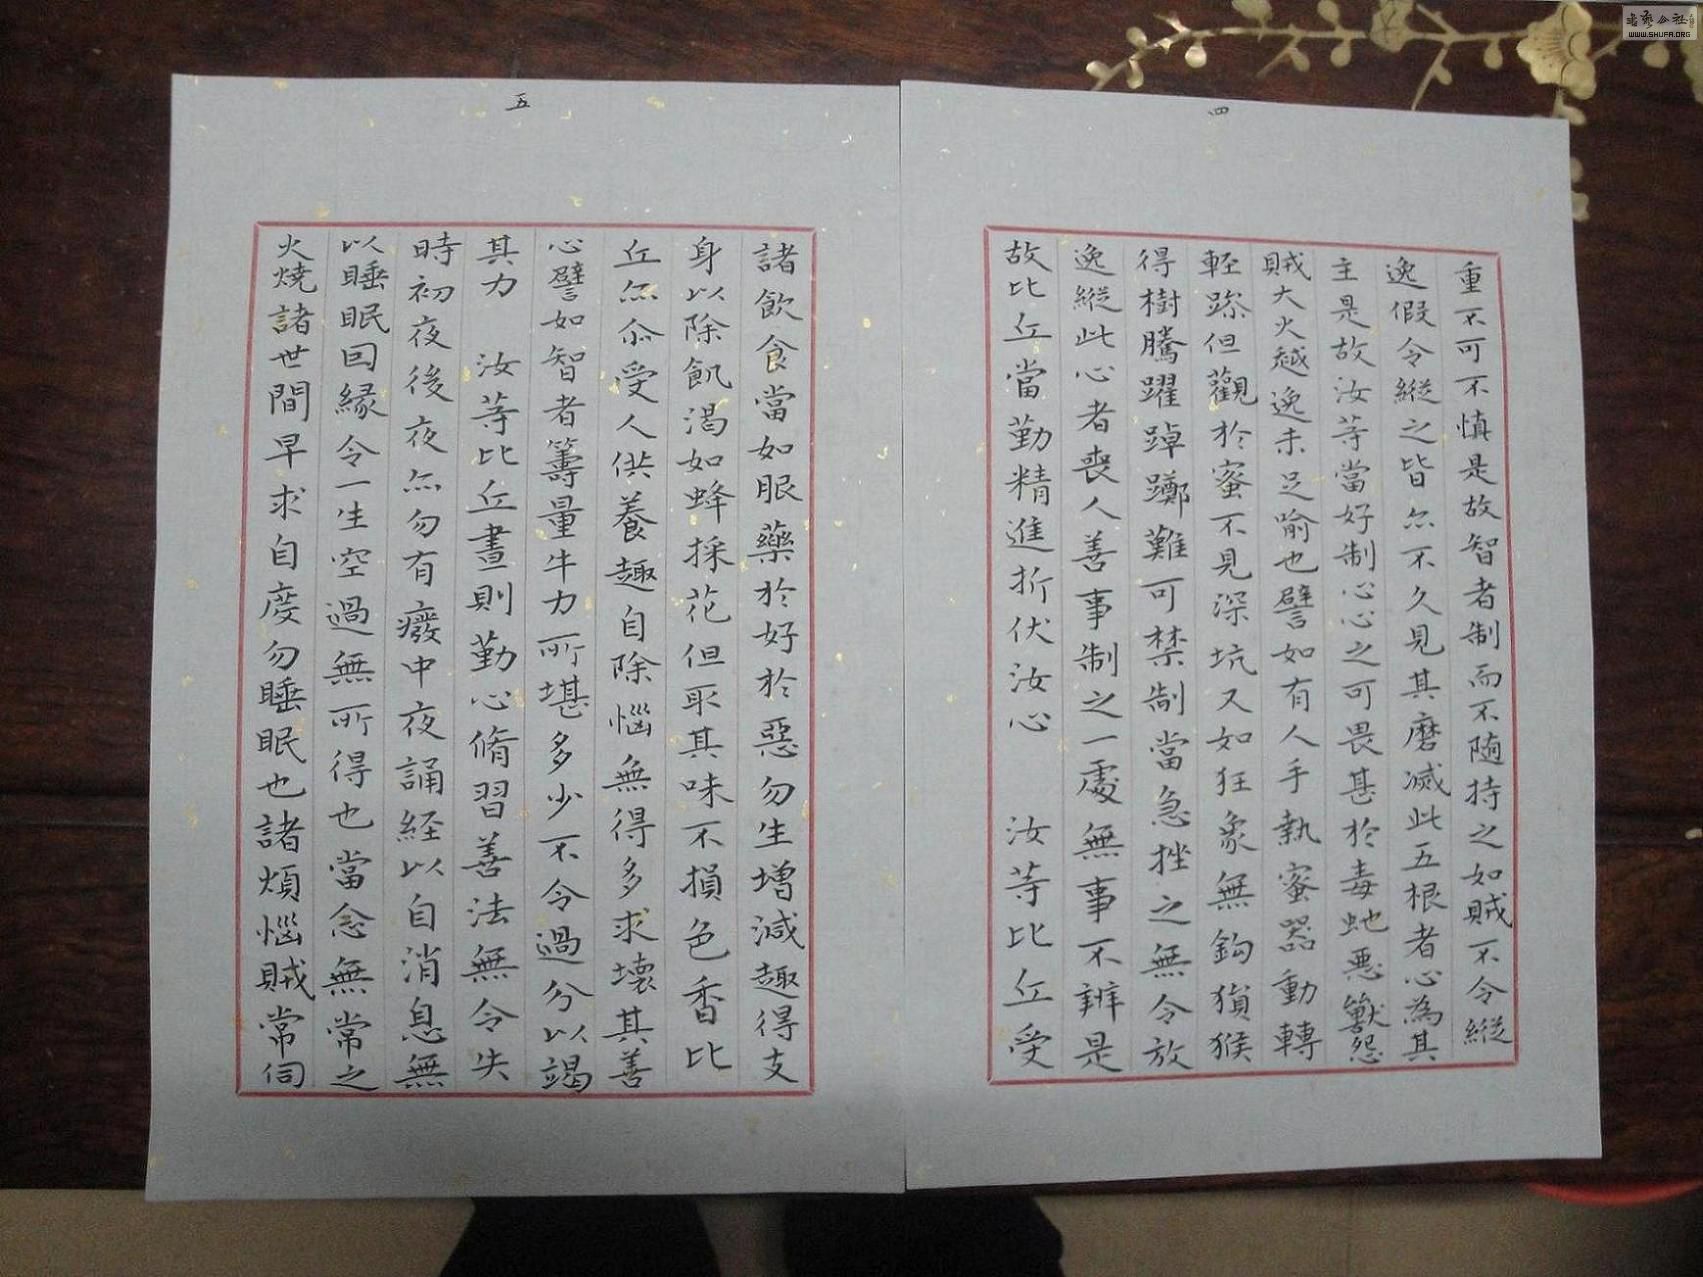 四
重不可不慎是故智者制而不随持之如賊不令縱
逸假令縱之皆亦不久見其磨滅此五根者心為其
主是故汝等當好制心心之可畏甚於毒虵惡獸怨
賊大火越逸未足喻也譬如有人手執蜜器動轉
輕躁但觀於蜜不見深坑又如狂象無鈎猨猴
得樹騰躍踔躑難可禁制當急挫之無令放
逸縱此心者喪人善事制之一處無事不辦是
故比丘當勤精進折伏汝心 汝等比丘受
五
諸飲食當如服藥於好於惡勿生增減趣得支
身以除飢渴如蜂採花但取其味不損色香比
丘亦尒受人供養趣自除惱無得多求壞其善
心譬如智者籌量牛力所堪多少不令過分以竭
其力 汝等比丘晝則勤心脩習善法無令失
時初夜後夜亦勿有癈中夜誦経以自消息無
以睡眠因緣令一生空過無所得也當念無常之
火燒諸世間早求自度勿睡眠也諸煩惱賊常伺
書藝公社
WWW.SHUFA.ORG